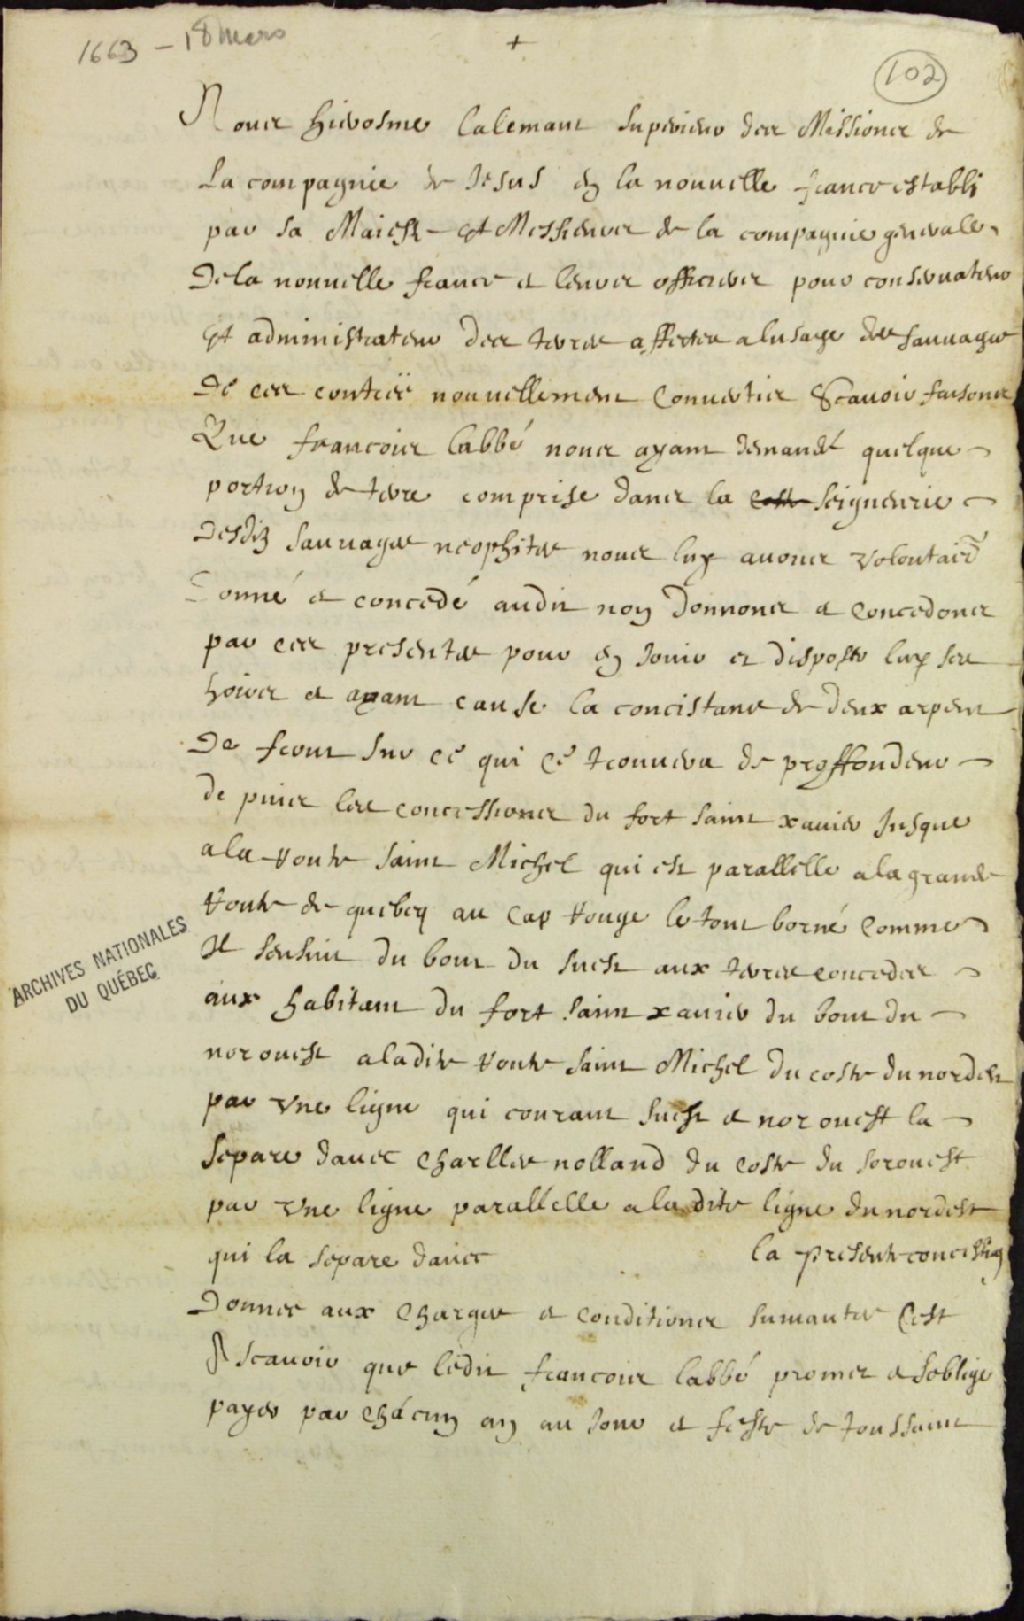 1663 – 18 mars
+
102
Nous hierosme lalemant superieur des Missions de
la compagnie de Jesus en la nouuelle france establi
par sa Maieste et Messieurs de la compagnie generalle
De la nouuelle france et leurs officiers pour conseruateur
et administrateur des terres affectes a lusage des sauuages
De ces contrées nouuellement Conuertis Scauoir faisons
Que francois labbé nous ayant demandé quelque
portion de terre comprise dans la seigneurie
Desdiz sauuages neophites nous luy auons volontairemt
Donné et concedé audit nom Donnons et Concedons
par ces presentes pour en Jouir et disposer luy ses
hoirs et ayant cause la concistance de deux arpent
De front sur ce qui ce trouuera de proffondeur
de puis les concessions du fort saint xauier Jusque
a la route saint Michel qui est parallelle a la grande
route de quebecq au Cap rouge le tout borné Comme
Il sensuit du bout du suest aux terres concedes
aux habitant du fort saint xauier du bout du
norouest a ladite route saint Michel du coste du nordest
par vne ligne qui courant suest et norouest la
separe dauec Charlles rolland du coste du sorouest
par vne ligne parallelle a la dite ligne du nordest
qui la separe dauec la presente concession
Donnee aux Charges et conditions suiuantes Cest
Ascauoir que ledit francois labbé promet et soblige
payer par chácun an au Jour et feste de toussaint
ARCHIVES NATIONALES
DU QUÉBEC